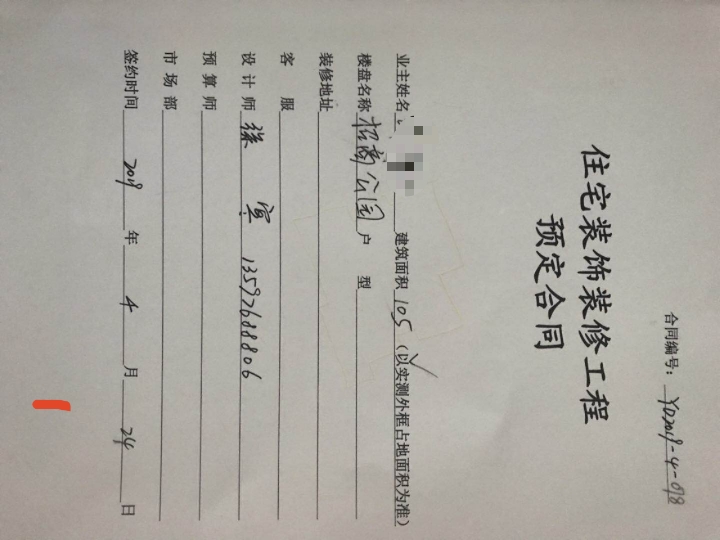 合同编号：YD2019-4-098
住宅装饰装修工程
预定合同
业主姓名 建筑面积 105 （以实测外框占地面积为准）
楼盘名称 招商公园 户 型
装修地址
客 服
设计师 徐 宾 13597688806
预算师
市场部
签约时间 2019 年 4 月 24 日